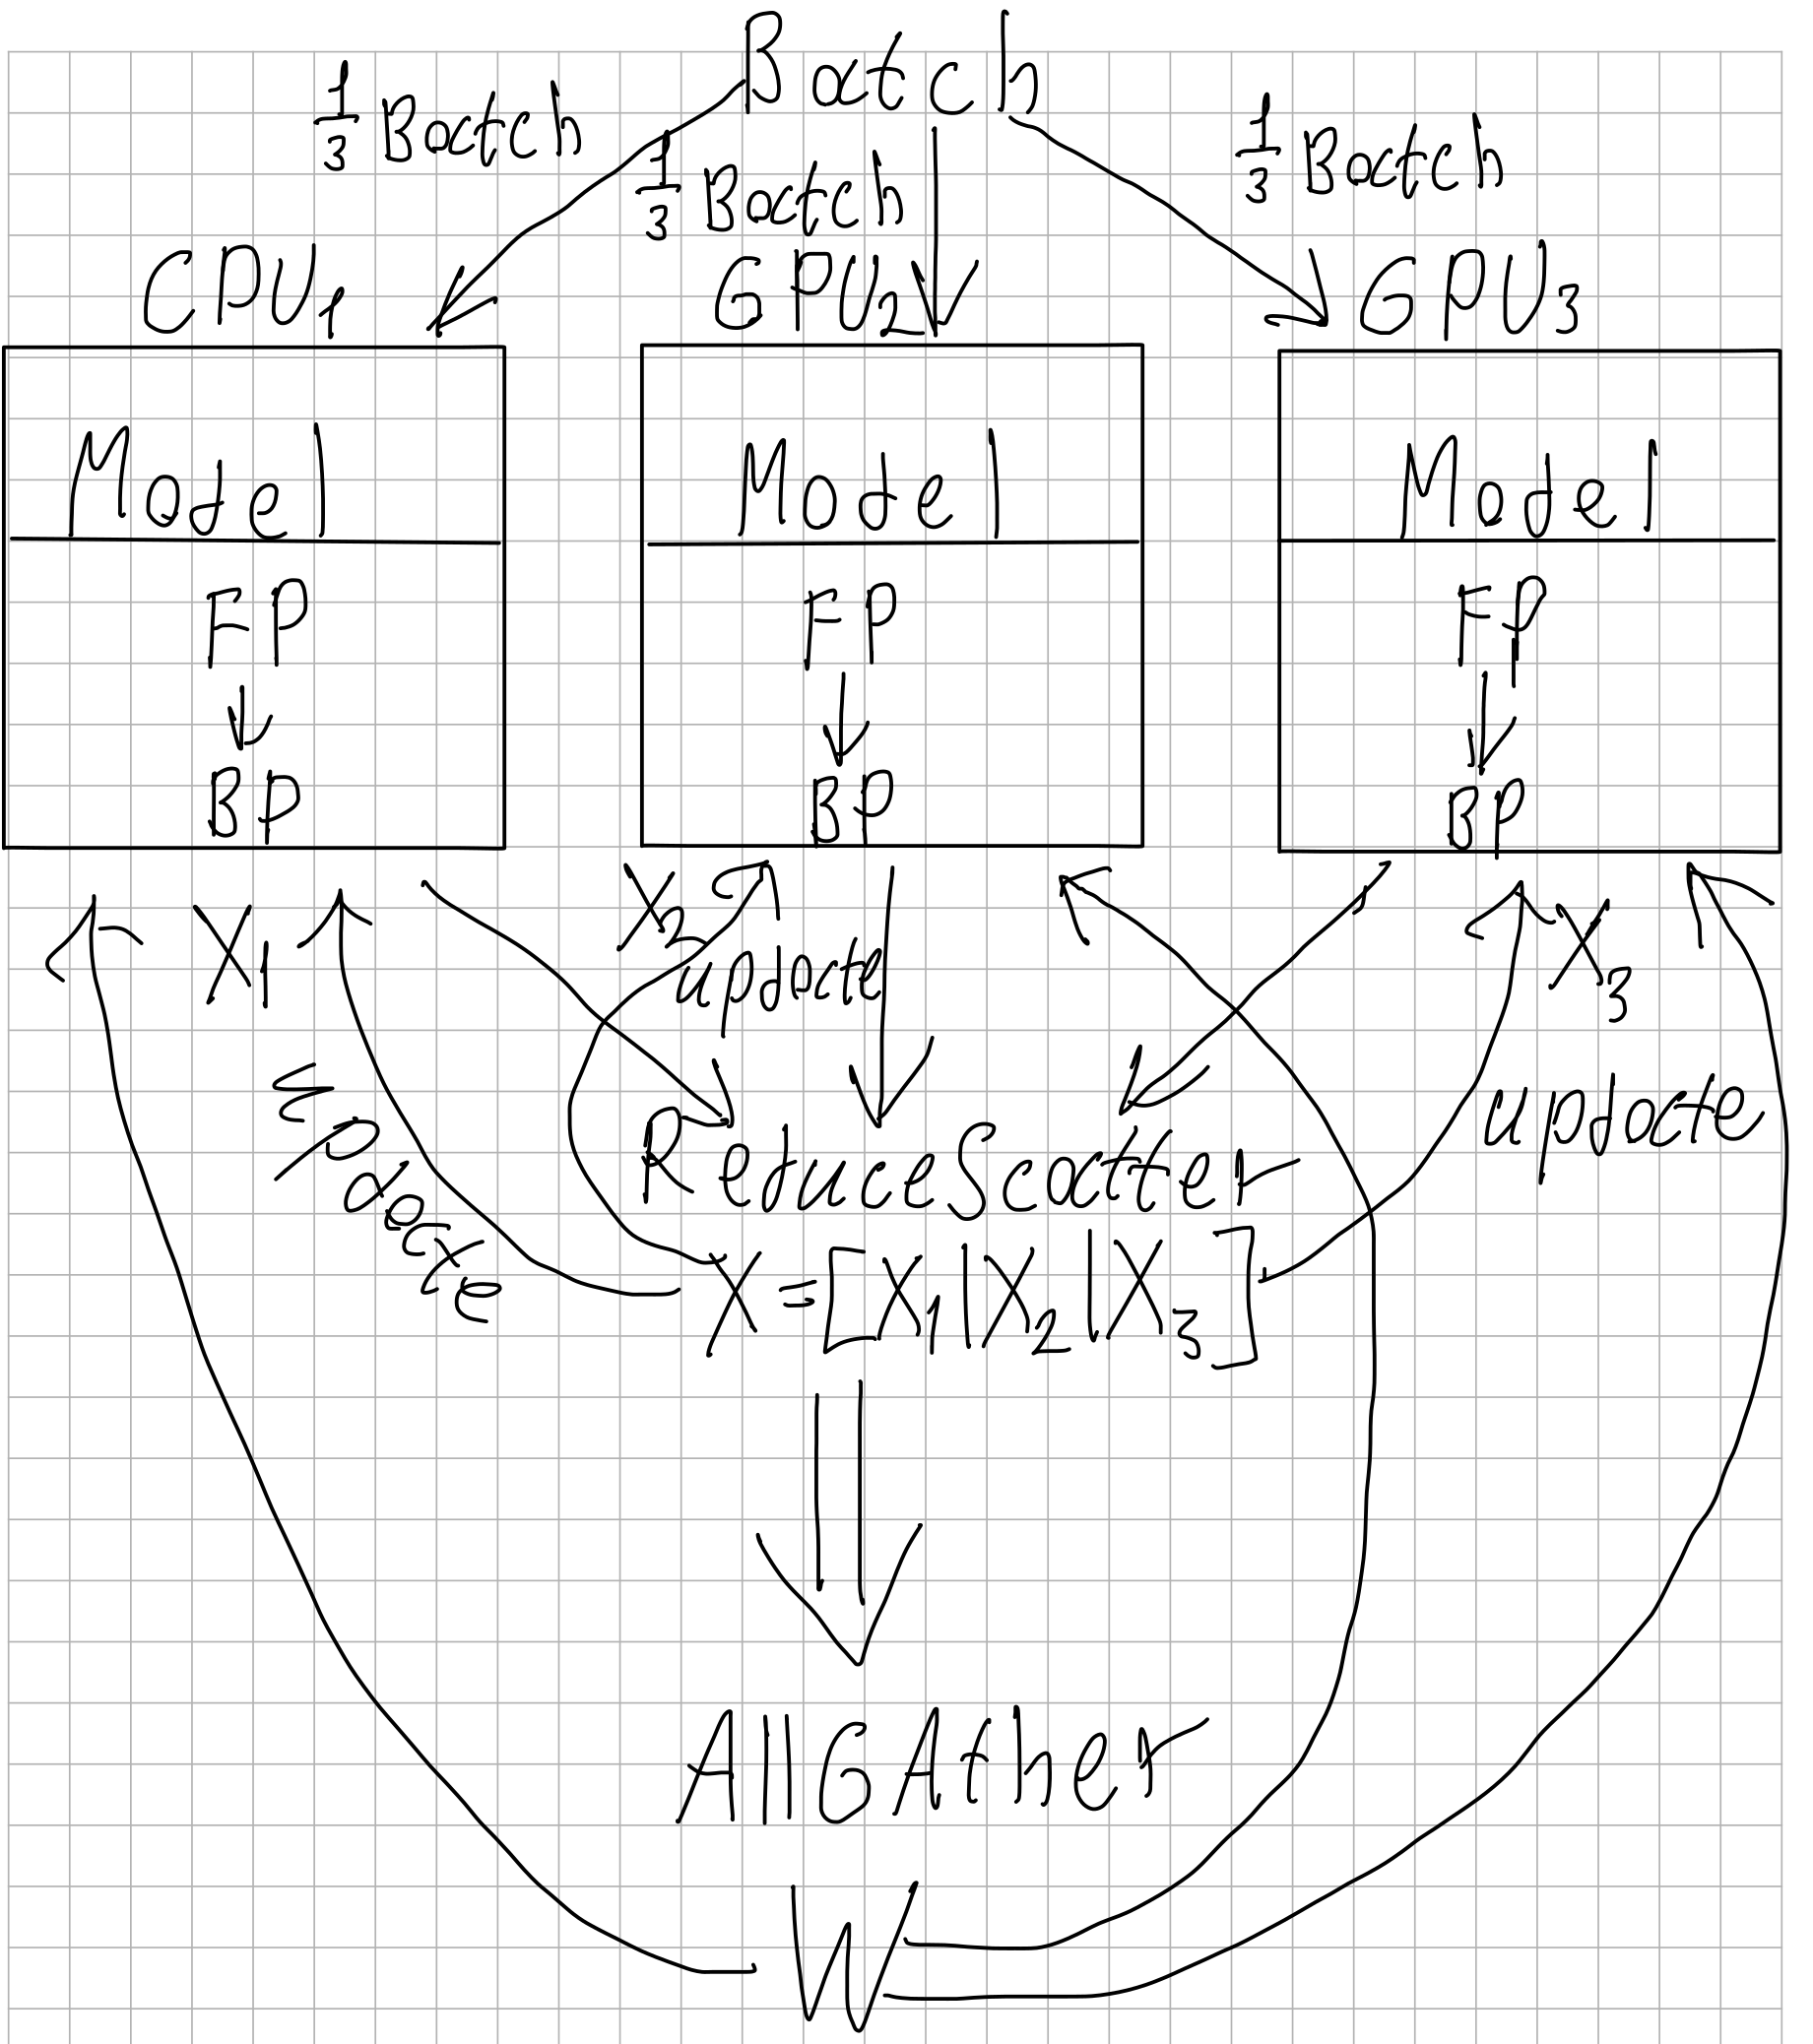 Batch
1/3 Batch
1/3 Batch
1/3 Batch
CPU1
GPU2
GPU3
Model
Model
Model
FP
FP
FP
BP
BP
BP
X1
X2
X3
update
update
update
ReduceScatter
X=[X1|X2|X3]
AllGAther
W